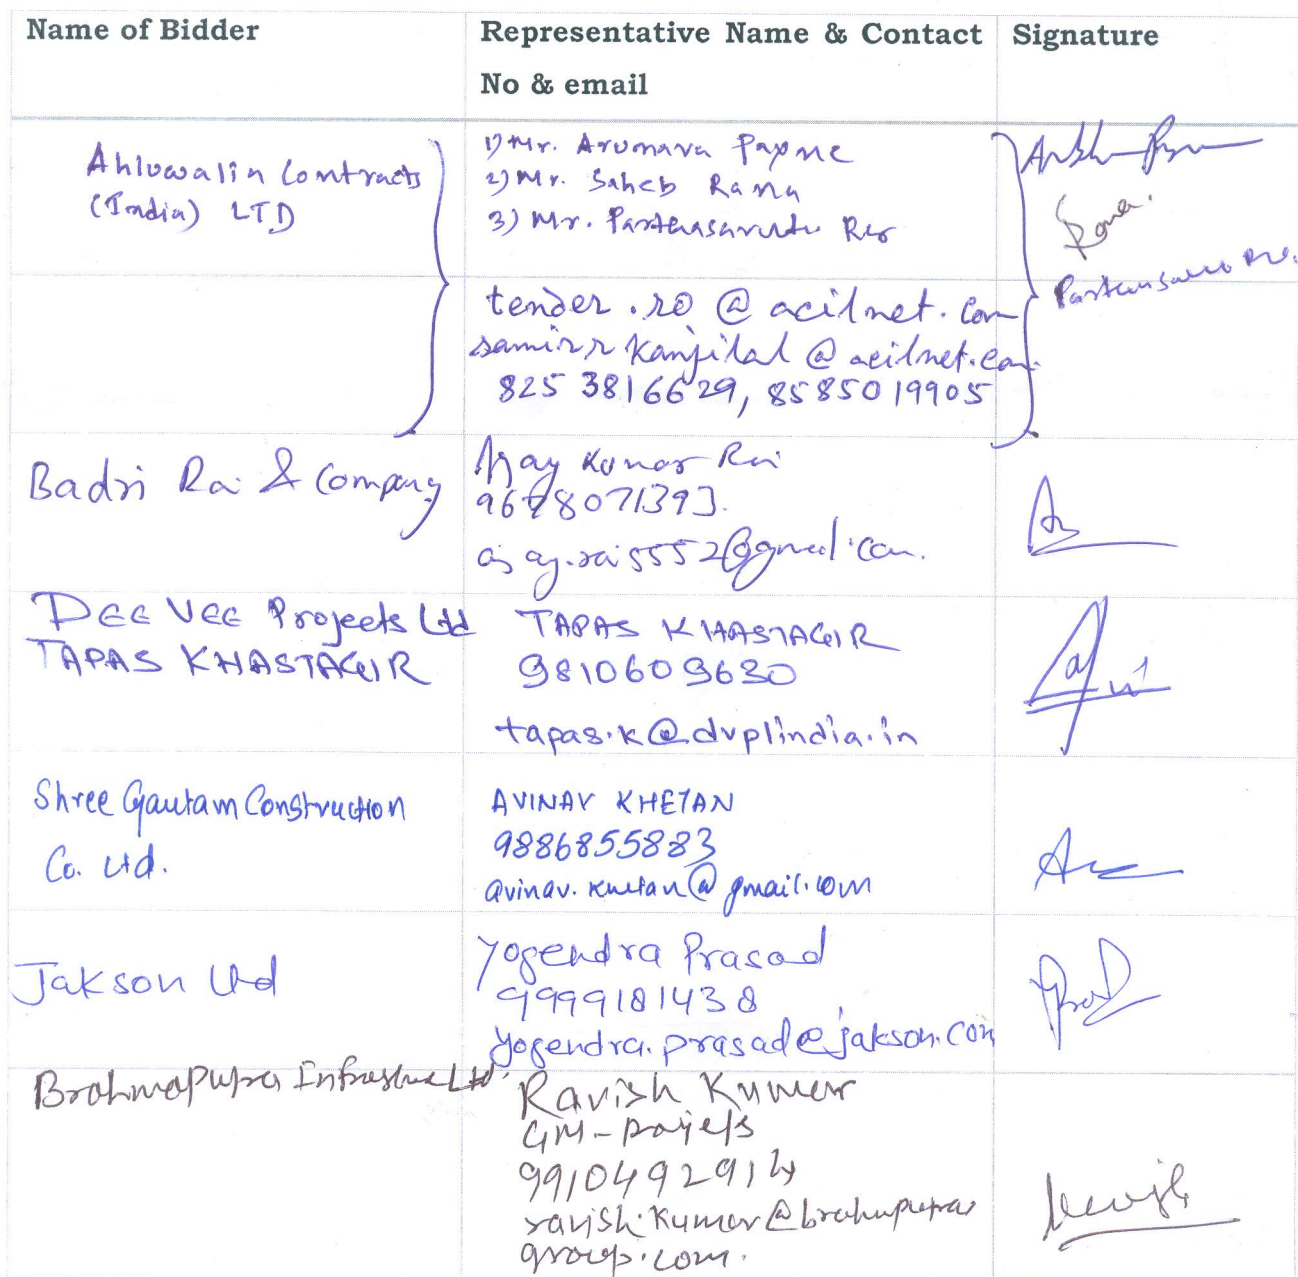 Name of Bidder
Representative Name & Contact
No & email
Signature
Ahluwalia Contracts
(India) LTD
1) Mr. Arumava
2) Mr. Saheb Rana
3) Mr.
tender.ro@acilnet.com
samirr kanjilal@acilnet.com
825 3816629, 8585019905
Rana.
Badri Rai & Company
Ajay Kumar Rai
ajay.rai5552@gmail.com.
DEE VEE Projects Ltd
TAPAS KHASTAGIR
TAPAS KHASTAGIR
9810609630
tapas.k@dvplindia.in
Shree Gautam Construction
Co. Ltd.
AVINAV KHETAN
9886855883
avinav.khetan@gmail.com
Jakson Ltd
Yogendra Prasad
9999181438
yogendra.prasad@jakson.com
Brahmaputra Infrastructure Ltd.
Ravish Kumar
GM-Projects
9910492914
ravish.kumar@brahmputra
group.com.